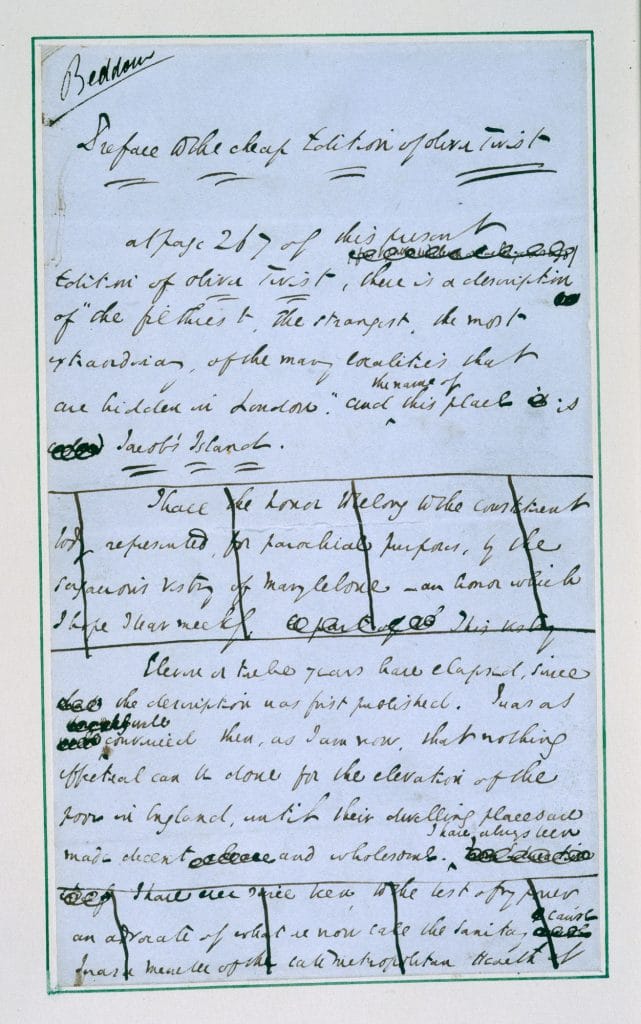 Beddow
Preface to the cheap Edition of Oliver Twist
At page 267 of this present
Edition of Oliver Twist, there is a description
of "the filthiest, the strangest, the most
extraordinary, of the many localities that
the name of
are hidden in London." And this place is
Jacob's Island.
I have the honor to belong to the constituent
body represented, for parochial purposes, by the
sagacious vestry of Marylebone — an honor which
I hope I bear meekly. This vestry
Eleven or twelve years have elapsed, since
the description was first published. I was as
convinced then, as I am now, that nothing
effectual can be done for the elevation of the
poor in England, until their dwelling places are
I have always been
made decent and wholesome.
I have ever since been to the best of my power
an advocate of what we now call the sanitary cause
I was a member of the late Metropolitan Health of